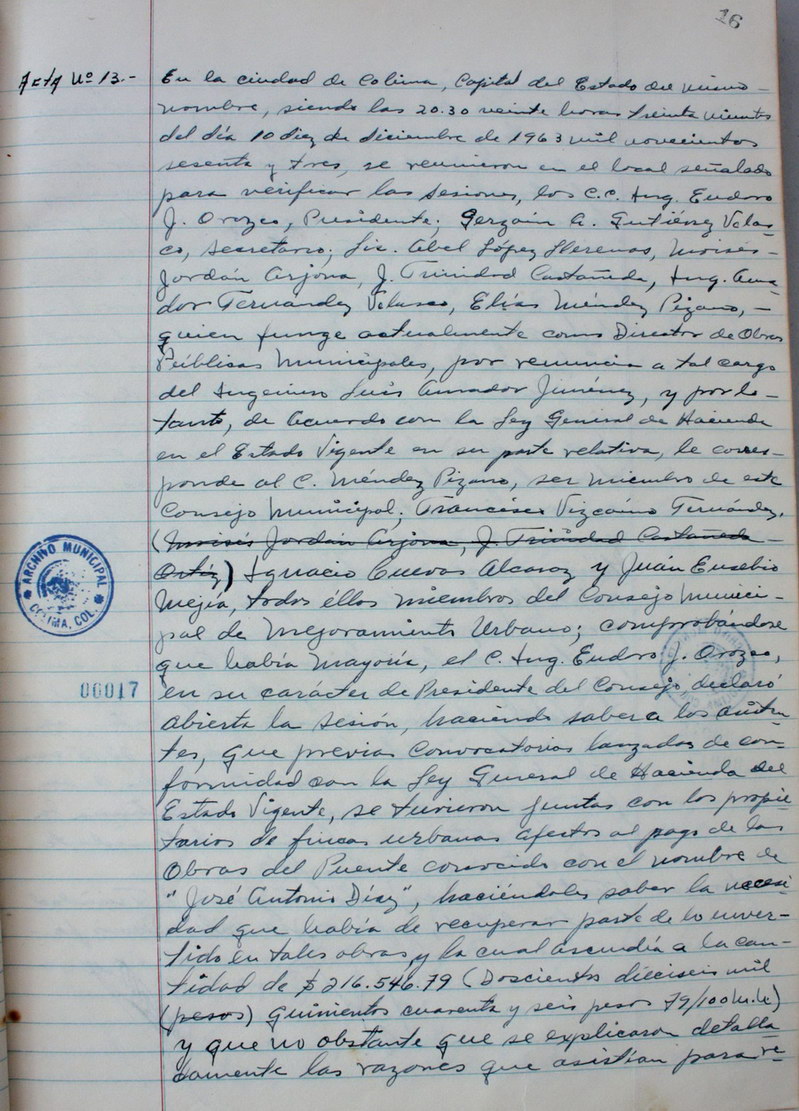 16
Acta Nº 13.-
En la ciudad de Colima, Capital del Estado del mismo-
nombre, siendo las 20.30 veinte horas treinta minutos
del día 10 diez de diciembre de 1963 mil novecientos
sesenta y tres, se reunieron en el local señalado
para verificar las sesiones, los C.C. Ing. Eudoro
J. Orozco, Presidente; Gerzaín A. Gutiérrez Velas-
co, Secretario; Lic. Abel López Llerenas, Moisés-
Jordán Arjona, J. Trinidad Castañeda, Ing. Ama-
dor Fernández Velasco, Elías Méndez Pizano,-
quien funge actualmente como Director de Obras
Públicas Municipales, por renuncia a tal cargo
del Ingeniero Luis Amador Jiménez, y por lo-
tanto, de acuerdo con la Ley General de Hacienda
en el Estado Vigente en su parte relativa, le corres-
ponde al C. Méndez Pizano, ser miembro de este
Consejo Municipal; Francisco Vizcaíno Fernández,
(Moisés Jordán Arjona, J. Trinidad Castañeda-
Ortíz,) Ignacio Cuevas Alcaraz y Juán Eusebio
Mejía, todos ellos miembros del Consejo Munici-
pal de Mejoramiento Urbano; comprobándose
que había mayoría, el C. Ing. Eudoro J. Orozco,
en su carácter de Presidente del Consejo declaró
abierta la sesión, haciendo saber a los asisten-
tes, que previas convocatorias lanzadas de con-
formidad con la Ley General de Hacienda del
Estado Vigente, se tuvieron juntas con los propie-
tarios de fincas urbanas afectos al pago de las
Obras del Puente conocido con el nombre de
"José Antonio Díaz", haciéndoles saber la necesi-
dad que había de recuperar parte de lo inver-
tido en tales obras y la cual ascendía a la can-
tidad de $216.546.79 (Doscientos dieciseis mil
(pesos) quinientos cuarenta y seis pesos 79/100 M.N.)
y que no obstante que se explicaron detalla
damente las razones que asistían para re-
ARCHIVO MUNICIPAL
COLIMA, COL.
00017